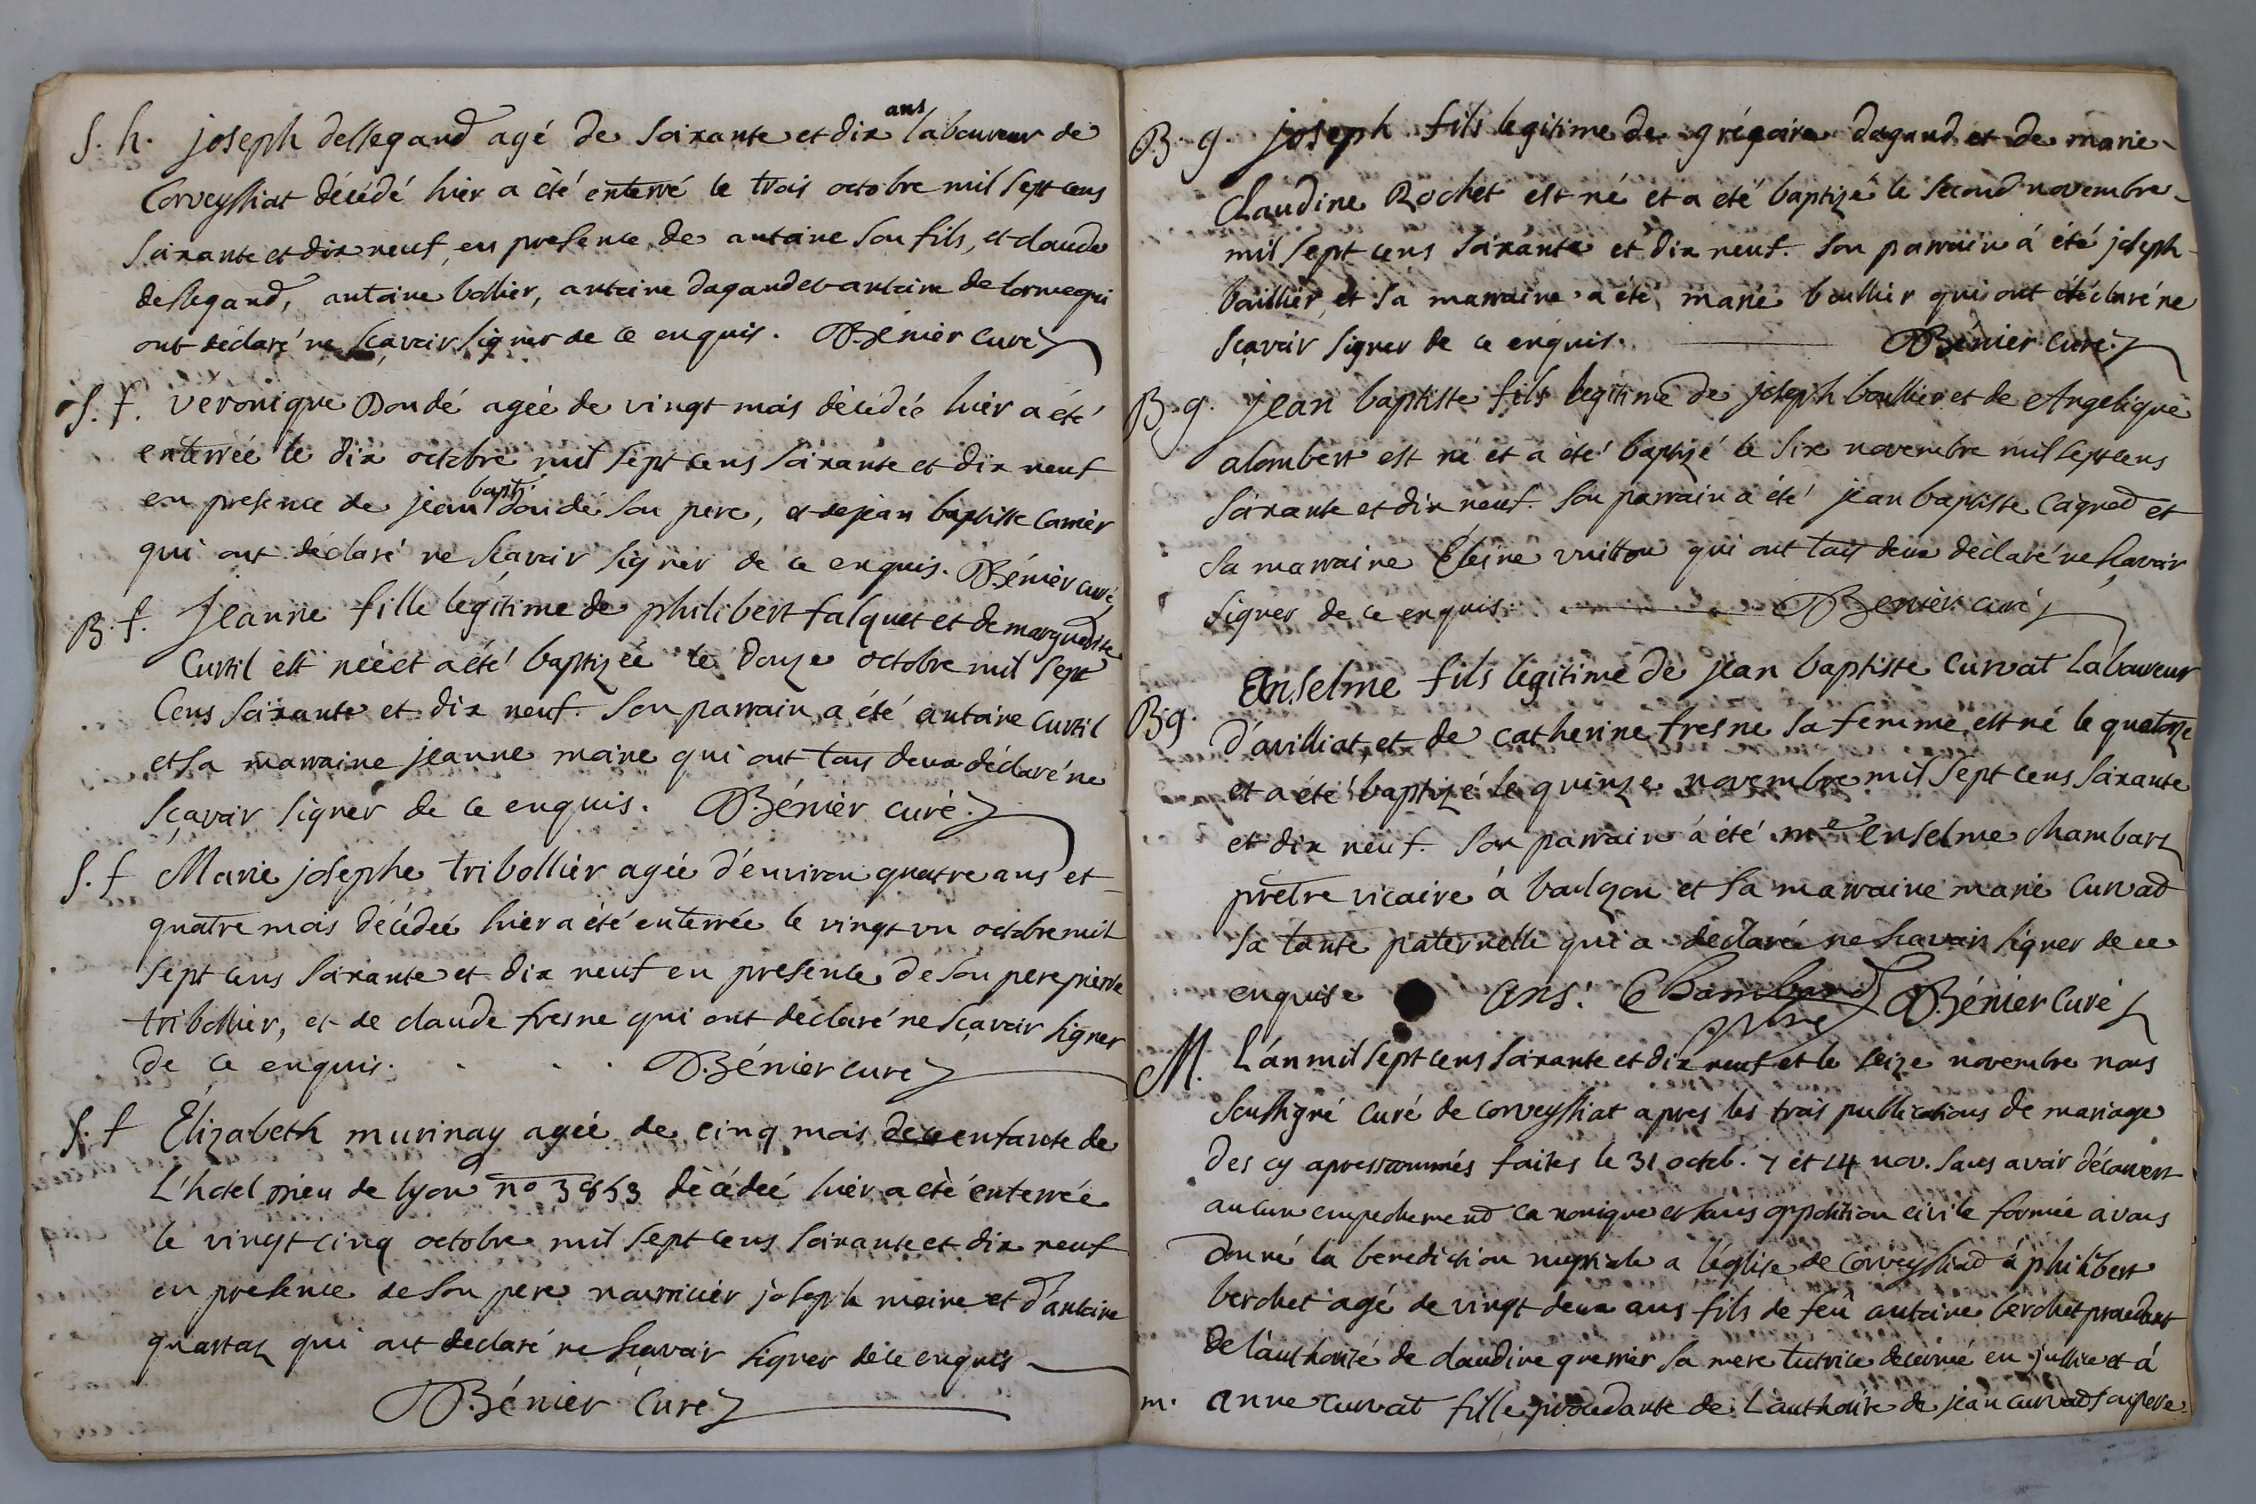 S. h. joseph dellegand agé de soixante et dix ans laboureur de
Corveyssiat décédé hier a été enterré le trois octobre mil sept cens
soixante et dix neuf, en presence de antoine son fils, et claude
dellegand, antoine bollier, antoine dagand et antoine delorme qui
ont déclaré ne sçavoir signer de ce enquis. Bénier curé
S. f. veronique Dondé agée de vingt mois décédée hier a été
enterrée le dix octobre mil sept cens soixante et dix neuf
en presence de jean bapt. dondé son pere, et de jean baptiste carrier
qui ont déclaré ne sçavoir signer de ce enquis. Bénier curé
B. f. Jeanne fille legitime de philibert falquet et de marguerite
Curtil est née et a été baptizée le douze octobre mil sept
Cens soixante et dix neuf. son parrain a été antoine Curtil
et sa marraine jeanne moine qui ont tous deux déclaré ne
sçavoir signer de ce enquis. Bénier curé
S. f Marie josephe tribollier agée d'environ quatre ans et
quatre mois décédée hier a été enterrée le vingt un octobre mil
sept cens soixante et dix neuf en presence de son pere pierre
tribollier, et de claude fresne qui ont déclaré ne sçavoir signer
de ce enquis. Bénier curé
S. f Élizabeth murinay agée de cinq mois enfante de
L'hotel Dieu de lyon no 3853 décédée hier a été enterrée
le vingt cinq octobre mil sept cens soixante et dix neuf
en presence de son pere nourricier joseph moine et d'antoine
quartaz qui ont declaré ne sçavoir signer de ce enquis
Bénier Curé
B. g. joseph fils legitime de grégoire dagand et de marie
Claudine Rochet est né et a été baptizé le second novembre
mil sept cens soixante et dix neuf. son parrain a été joseph
baillier, et sa marraine a été marie boullier qui ont déclaré ne
sçavoir signer de ce enquis. Bénier curé
B. g. jean baptiste fils legitime de joseph boullier et de Angelique
alombert est né et a été baptizé le six novembre mil sept cens
soixante et dix neuf. son parrain a été jean baptiste Cagnod et
sa marraine vuitton qui ont tous deux déclaré ne sçavoir
signer de ce enquis. Benier curé
B g. Enselme fils legitime de jean baptiste Curvat Laboureur
d'avilliat, et de catherine fresne sa femme, est né le quatorze
et a été baptizé le quinze novembre mil sept cens soixante
et dix neuf. son parrain a été me enselme chambard
prêtre vicaire à et sa marraine marie Curvad
sa tante paternelle qui a declaré ne sçavoir signer de ce
enquise Ans. Chambard ptre Bénier Curé
M. L'an mil sept cens soixante et dix neuf et le seize novembre nous
soussigné curé de corveyssiat apres les trois publications de mariage
des cy apres nommés faites le 31 octob. 7 et 14 nov. sans avoir découvert
aucun empechement canonique et sans opposition civile formée avons
donné la benediction nuptiale a léglise de Corveyssiad à philibert
berchet agé de vingt deux ans fils de feû antoine berchet procedant
de l'authorité de claudine grenier sa mere tutrice decernée en justice et à
m. anne Curvat fille procedante de L'authorité de jean curvad son pere